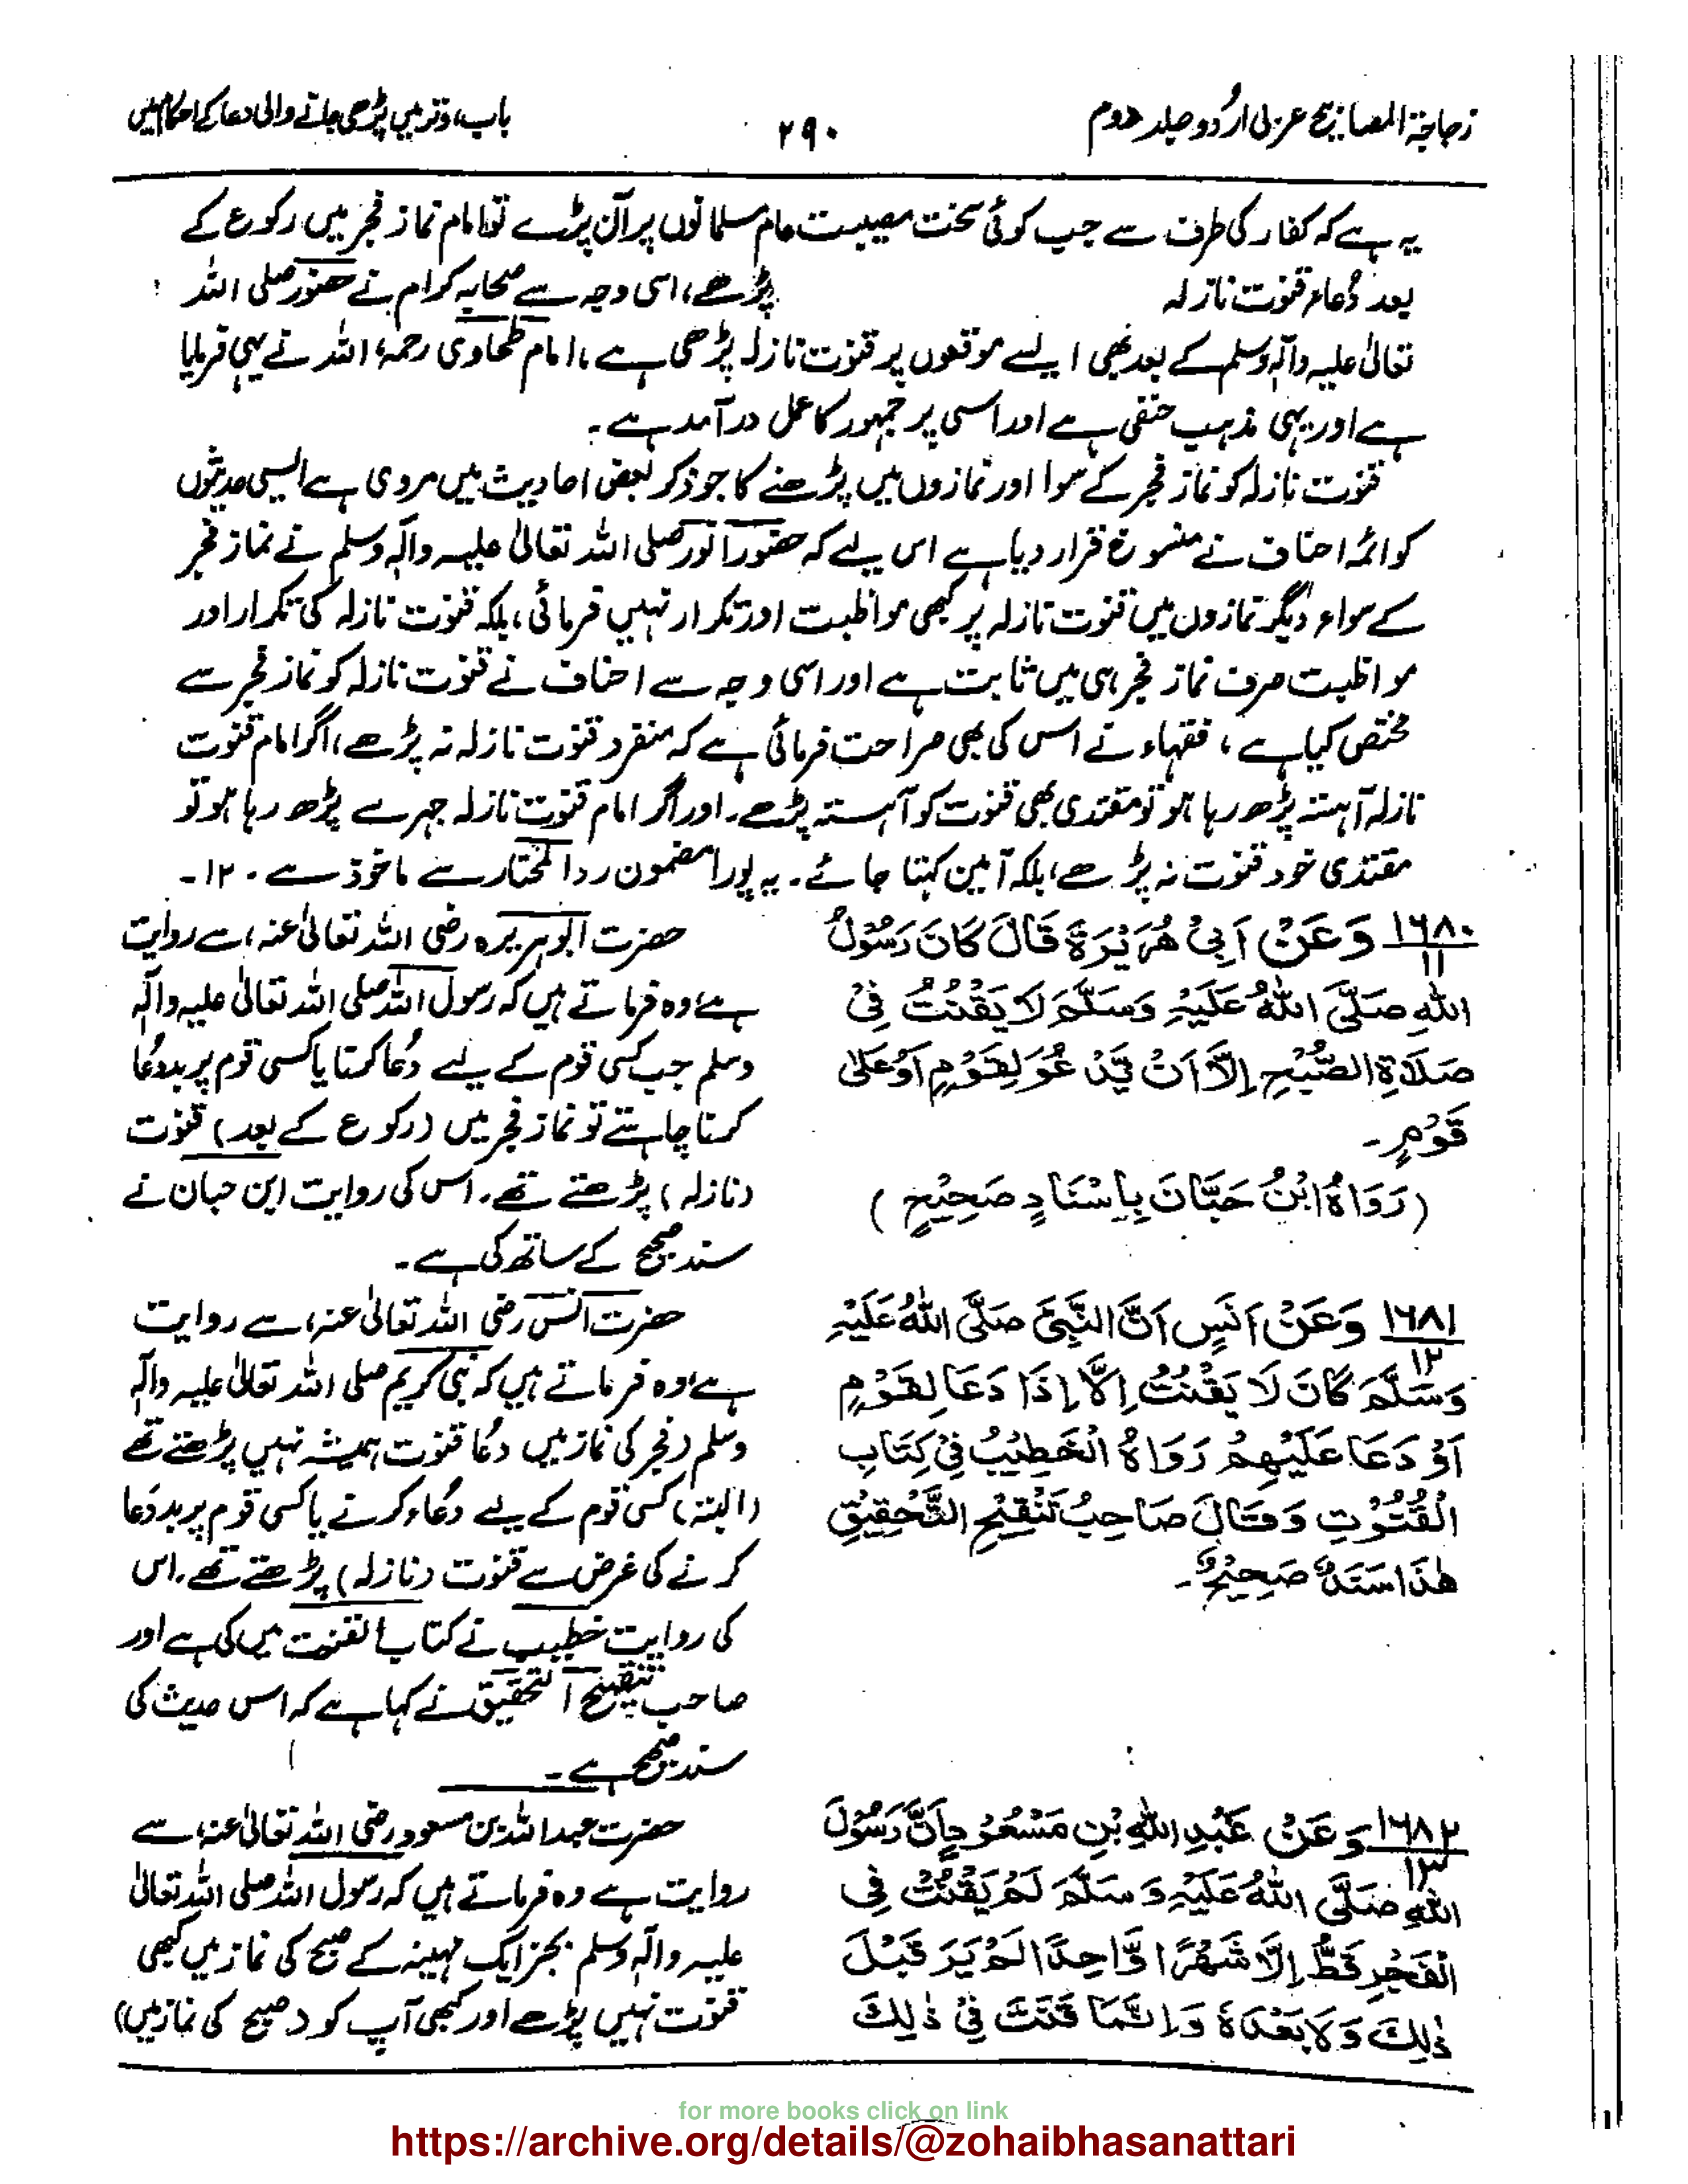 زجاجۃ المصابیح عربی اردو جلد دوم
۲۹۰
باب، وتر میں پڑھی جانے والی دعا کے احکام میں
یہ ہے کہ کفار کی طرف سے جب کوئی سخت مصیبت عام مسلمانوں پر آن پڑے تو امام نماز فجر میں رکوع کے
بعد دُعاء قنوت نازلہ پڑھے، اسی وجہ سے صحابہ کرام نے حضور صلی اللہ
تعالیٰ علیہ وآلہٖ وسلم کے بعد بھی ایسے موقعوں پر قنوت نازلہ پڑھی ہے، امام طحاوی رحمۃ اللہ نے یہی فرمایا
ہے اور یہی مذہب حنفی ہے اور اسی پر جمہور کا عمل درآمد ہے۔
قنوت نازلہ کو نماز فجر کے سوا اور نمازوں میں پڑھنے کا جو ذکر بعض احادیث میں مروی ہے ایسی حدیثوں
کو ائمہ احناف نے منسوخ قرار دیا ہے اس لیے کہ حضور انور صلی اللہ تعالیٰ علیہ وآلہٖ وسلم نے نماز فجر
کے سواء دیگر نمازوں میں قنوت نازلہ پر کبھی مواظبت اور تکرار نہیں فرمائی، بلکہ قنوت نازلہ کی تکرار اور
مواظبت صرف نماز فجر ہی میں ثابت ہے اور اسی وجہ سے احناف نے قنوت نازلہ کو نماز فجر سے
مختص کیا ہے، فقہاء نے اس کی بھی صراحت فرمائی ہے کہ منفرد قنوت نازلہ نہ پڑھے، اگر امام قنوت
نازلہ آہستہ پڑھ رہا ہو تو مقتدی بھی قنوت کو آہستہ پڑھے۔ اور اگر امام قنوت نازلہ جہر سے پڑھ رہا ہو تو
مقتدی خود قنوت نہ پڑھے، بلکہ آمین کہتا جائے۔ یہ پورا مضمون ردالمختار سے ماخوذ ہے۔ ۱۲۔
۱۶۸۰ وَعَنْ اَبِیْ هُرَیْرَةَ قَالَ کَانَ رَسُوْلُ
۱۱
اللّٰهِ صَلَّی اللّٰهُ عَلَیْهِ وَسَلَّمَ لَا یَقْنُتُ فِیْ
صَلَاةِ الصُّبْحِ اِلَّا اَنْ یَّدْعُوَ لِقَوْمٍ اَوْ عَلٰی
قَوْمٍ۔
(رَوَاهُ ابْنُ حَبَّانَ بِاِسْنَادٍ صَحِیْحٍ)
حضرت ابوہریرہ رضی اللہ تعالیٰ عنہ، سے روایت
ہے، وہ فرماتے ہیں کہ رسول اللہ صلی اللہ تعالیٰ علیہ وآلہٖ
وسلم جب کسی قوم کے لیے دُعا کرتا یا کسی قوم پر بددُعا
کرنا چاہتے تو نماز فجر میں (رکوع کے بعد) قنوت
(نازلہ) پڑھتے تھے۔ اس کی روایت ابن حبان نے
سند صحیح کے ساتھ کی ہے۔
۱۶۸۱ وَعَنْ اَنَسٍ اَنَّ النَّبِیَّ صَلَّی اللّٰهُ عَلَیْهِ
۱۲
وَسَلَّمَ کَانَ لَا یَقْنُتُ اِلَّا اِذَا دَعَا لِقَوْمٍ
اَوْ دَعَا عَلَیْهِمْ رَوَاهُ الْخَطِیْبُ فِیْ کِتَابِ
الْقُنُوْتِ وَقَالَ صَاحِبُ تَنْقِیْحِ التَّحْقِیْقِ
هٰذَا سَنَدٌ صَحِیْحٌ۔
حضرت انس رضی اللہ تعالیٰ عنہ، سے روایت
ہے، وہ فرماتے ہیں کہ نبی کریم صلی اللہ تعالیٰ علیہ وآلہٖ
وسلم (فجر کی نماز میں) دعا قنوت ہمیشہ نہیں پڑھتے تھے
(البتہ) کسی قوم کے لیے دُعاء کرنے یا کسی قوم پر بددُعا
کرنے کی غرض سے قنوت (نازلہ) پڑھتے تھے۔ اس
کی روایت خطیب نے کتاب القنوت میں کی ہے اور
صاحب تنقیح التحقیق نے کہا ہے کہ اس حدیث کی
سند صحیح ہے۔
۱۶۸۲ وَعَنْ عَبْدِ اللّٰهِ بْنِ مَسْعُوْدٍ اَنَّ رَسُوْلَ
۱۳
اللّٰهِ صَلَّی اللّٰهُ عَلَیْهِ وَسَلَّمَ لَمْ یَقْنُتْ فِی
الْفَجْرِ قَطُّ اِلَّا شَهْرًا وَّاحِدًا لَمْ یَرَ قَبْلَ
ذٰلِكَ وَلَا بَعْدَهٗ وَاِنَّمَا قَنَتَ فِیْ ذٰلِكَ
حضرت عبداللہ بن مسعود رضی اللہ تعالیٰ عنہ، سے
روایت ہے وہ فرماتے ہیں کہ رسول اللہ صلی اللہ تعالیٰ
علیہ وآلہٖ وسلم بجز ایک مہینہ کے صبح کی نماز میں کبھی
قنوت نہیں پڑھے اور کبھی آپ کو (صبح کی نماز میں)
for more books click on link
https://archive.org/details/@zohaibhasanattari